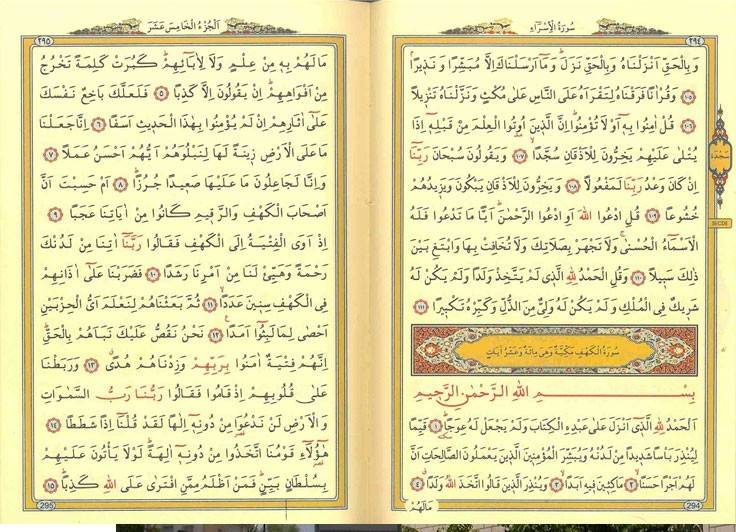 سُورَةُ الْاِسْرَٓاءِ
٢٩٤
وَبِالْحَقِّ اَنْزَلْنَاهُ وَبِالْحَقِّ نَزَلَۜ وَمَٓا اَرْسَلْنَاكَ اِلَّا مُبَشِّرًا وَنَذ۪يرًاۢ
﴿١٠٥﴾ وَقُرْاٰنًا فَرَقْنَاهُ لِتَقْرَاَهُ عَلَى النَّاسِ عَلٰى مُكْثٍ وَنَزَّلْنَاهُ تَنْز۪يلًا
﴿١٠٦﴾ قُلْ اٰمِنُوا بِه۪ٓ اَوْ لَا تُؤْمِنُواۜ اِنَّ الَّذ۪ينَ اُو۫تُوا الْعِلْمَ مِنْ قَبْلِه۪ٓ اِذَا
يُتْلٰى عَلَيْهِمْ يَخِرُّونَ لِلْاَذْقَانِ سُجَّدًاۙ ﴿١٠٧﴾ وَيَقُولُونَ سُبْحَانَ رَبِّنَٓا
اِنْ كَانَ وَعْدُ رَبِّنَا لَمَفْعُولًا ﴿١٠٨﴾ وَيَخِرُّونَ لِلْاَذْقَانِ يَبْكُونَ وَيَز۪يدُهُمْ
خُشُوعًا ﴿١٠٩﴾ قُلِ ادْعُوا اللّٰهَ اَوِ ادْعُوا الرَّحْمٰنَۜ اَيًّا مَا تَدْعُوا فَلَهُ
الْاَسْمَٓاءُ الْحُسْنٰىۚ وَلَا تَجْهَرْ بِصَلَاتِكَ وَلَا تُخَافِتْ بِهَا وَابْتَغِ بَيْنَ
ذٰلِكَ سَب۪يلًا ﴿١١٠﴾ وَقُلِ الْحَمْدُ لِلّٰهِ الَّذ۪ي لَمْ يَتَّخِذْ وَلَدًا وَلَمْ يَكُنْ لَهُ
شَر۪يكٌ فِي الْمُلْكِ وَلَمْ يَكُنْ لَهُ وَلِيٌّ مِنَ الذُّلِّ وَكَبِّرْهُ تَكْب۪يرًا ﴿١١١﴾
سُورَةُ الْكَهْفِ مَكِّيَّةٌ وَهِيَ مِائَةٌ وَعَشْرُ اٰيَاتٍ
بِسْمِ اللّٰهِ الرَّحْمٰنِ الرَّح۪يمِ
اَلْحَمْدُ لِلّٰهِ الَّذ۪ٓي اَنْزَلَ عَلٰى عَبْدِهِ الْكِتَابَ وَلَمْ يَجْعَلْ لَهُ عِوَجًاۜ ﴿١﴾ قَيِّمًا
لِيُنْذِرَ بَأْسًا شَد۪يدًا مِنْ لَدُنْهُ وَيُبَشِّرَ الْمُؤْمِن۪ينَ الَّذ۪ينَ يَعْمَلُونَ الصَّالِحَاتِ اَنَّ
لَهُمْ اَجْرًا حَسَنًاۙ ﴿٢﴾ مَاكِث۪ينَ ف۪يهِ اَبَدًاۙ ﴿٣﴾ وَيُنْذِرَ الَّذ۪ينَ قَالُوا اتَّخَذَ اللّٰهُ وَلَدًاۗ ﴿٤﴾
مَا لَهُمْ
294
سَجْدَة
SECDE
اَلْجُزْءُ الْخَامِسَ عَشَرَ
٢٩٥
مَا لَهُمْ بِه۪ مِنْ عِلْمٍ وَلَا لِاٰبَٓائِهِمْۜ كَبُرَتْ كَلِمَةً تَخْرُجُ
مِنْ اَفْوَاهِهِمْۜ اِنْ يَقُولُونَ اِلَّا كَذِبًا ﴿٥﴾ فَلَعَلَّكَ بَاخِعٌ نَفْسَكَ
عَلٰٓى اٰثَارِهِمْ اِنْ لَمْ يُؤْمِنُوا بِهٰذَا الْحَد۪يثِ اَسَفًا ﴿٦﴾ اِنَّا جَعَلْنَا
مَا عَلَى الْاَرْضِ ز۪ينَةً لَهَا لِنَبْلُوَهُمْ اَيُّهُمْ اَحْسَنُ عَمَلًا ﴿٧﴾
وَاِنَّا لَجَاعِلُونَ مَا عَلَيْهَا صَع۪يدًا جُرُزًاۜ ﴿٨﴾ اَمْ حَسِبْتَ اَنَّ
اَصْحَابَ الْكَهْفِ وَالرَّق۪يمِ كَانُوا مِنْ اٰيَاتِنَا عَجَبًا ﴿٩﴾
اِذْ اَوَى الْفِتْيَةُ اِلَى الْكَهْفِ فَقَالُوا رَبَّنَٓا اٰتِنَا مِنْ لَدُنْكَ
رَحْمَةً وَهَيِّئْ لَنَا مِنْ اَمْرِنَا رَشَدًا ﴿١٠﴾ فَضَرَبْنَا عَلٰٓى اٰذَانِهِمْ
فِي الْكَهْفِ سِن۪ينَ عَدَدًاۙ ﴿١١﴾ ثُمَّ بَعَثْنَاهُمْ لِنَعْلَمَ اَيُّ الْحِزْبَيْنِ
اَحْصٰى لِمَا لَبِثُٓوا اَمَدًا۟ ﴿١٢﴾ نَحْنُ نَقُصُّ عَلَيْكَ نَبَاَهُمْ بِالْحَقِّۜ
اِنَّهُمْ فِتْيَةٌ اٰمَنُوا بِرَبِّهِمْ وَزِدْنَاهُمْ هُدًىۗ ﴿١٣﴾ وَرَبَطْنَا
عَلٰى قُلُوبِهِمْ اِذْ قَامُوا فَقَالُوا رَبُّنَا رَبُّ السَّمٰوَاتِ
وَالْاَرْضِ لَنْ نَدْعُوَ۬ا مِنْ دُونِه۪ٓ اِلٰهًا لَقَدْ قُلْنَٓا اِذًا شَطَطًا ﴿١٤﴾
هٰٓؤُ۬لَٓاءِ قَوْمُنَا اتَّخَذُوا مِنْ دُونِه۪ٓ اٰلِهَةًۜ لَوْلَا يَأْتُونَ عَلَيْهِمْ
بِسُلْطَانٍ بَيِّنٍۜ فَمَنْ اَظْلَمُ مِمَّنِ افْتَرٰى عَلَى اللّٰهِ كَذِبًاۜ ﴿١٥﴾
295